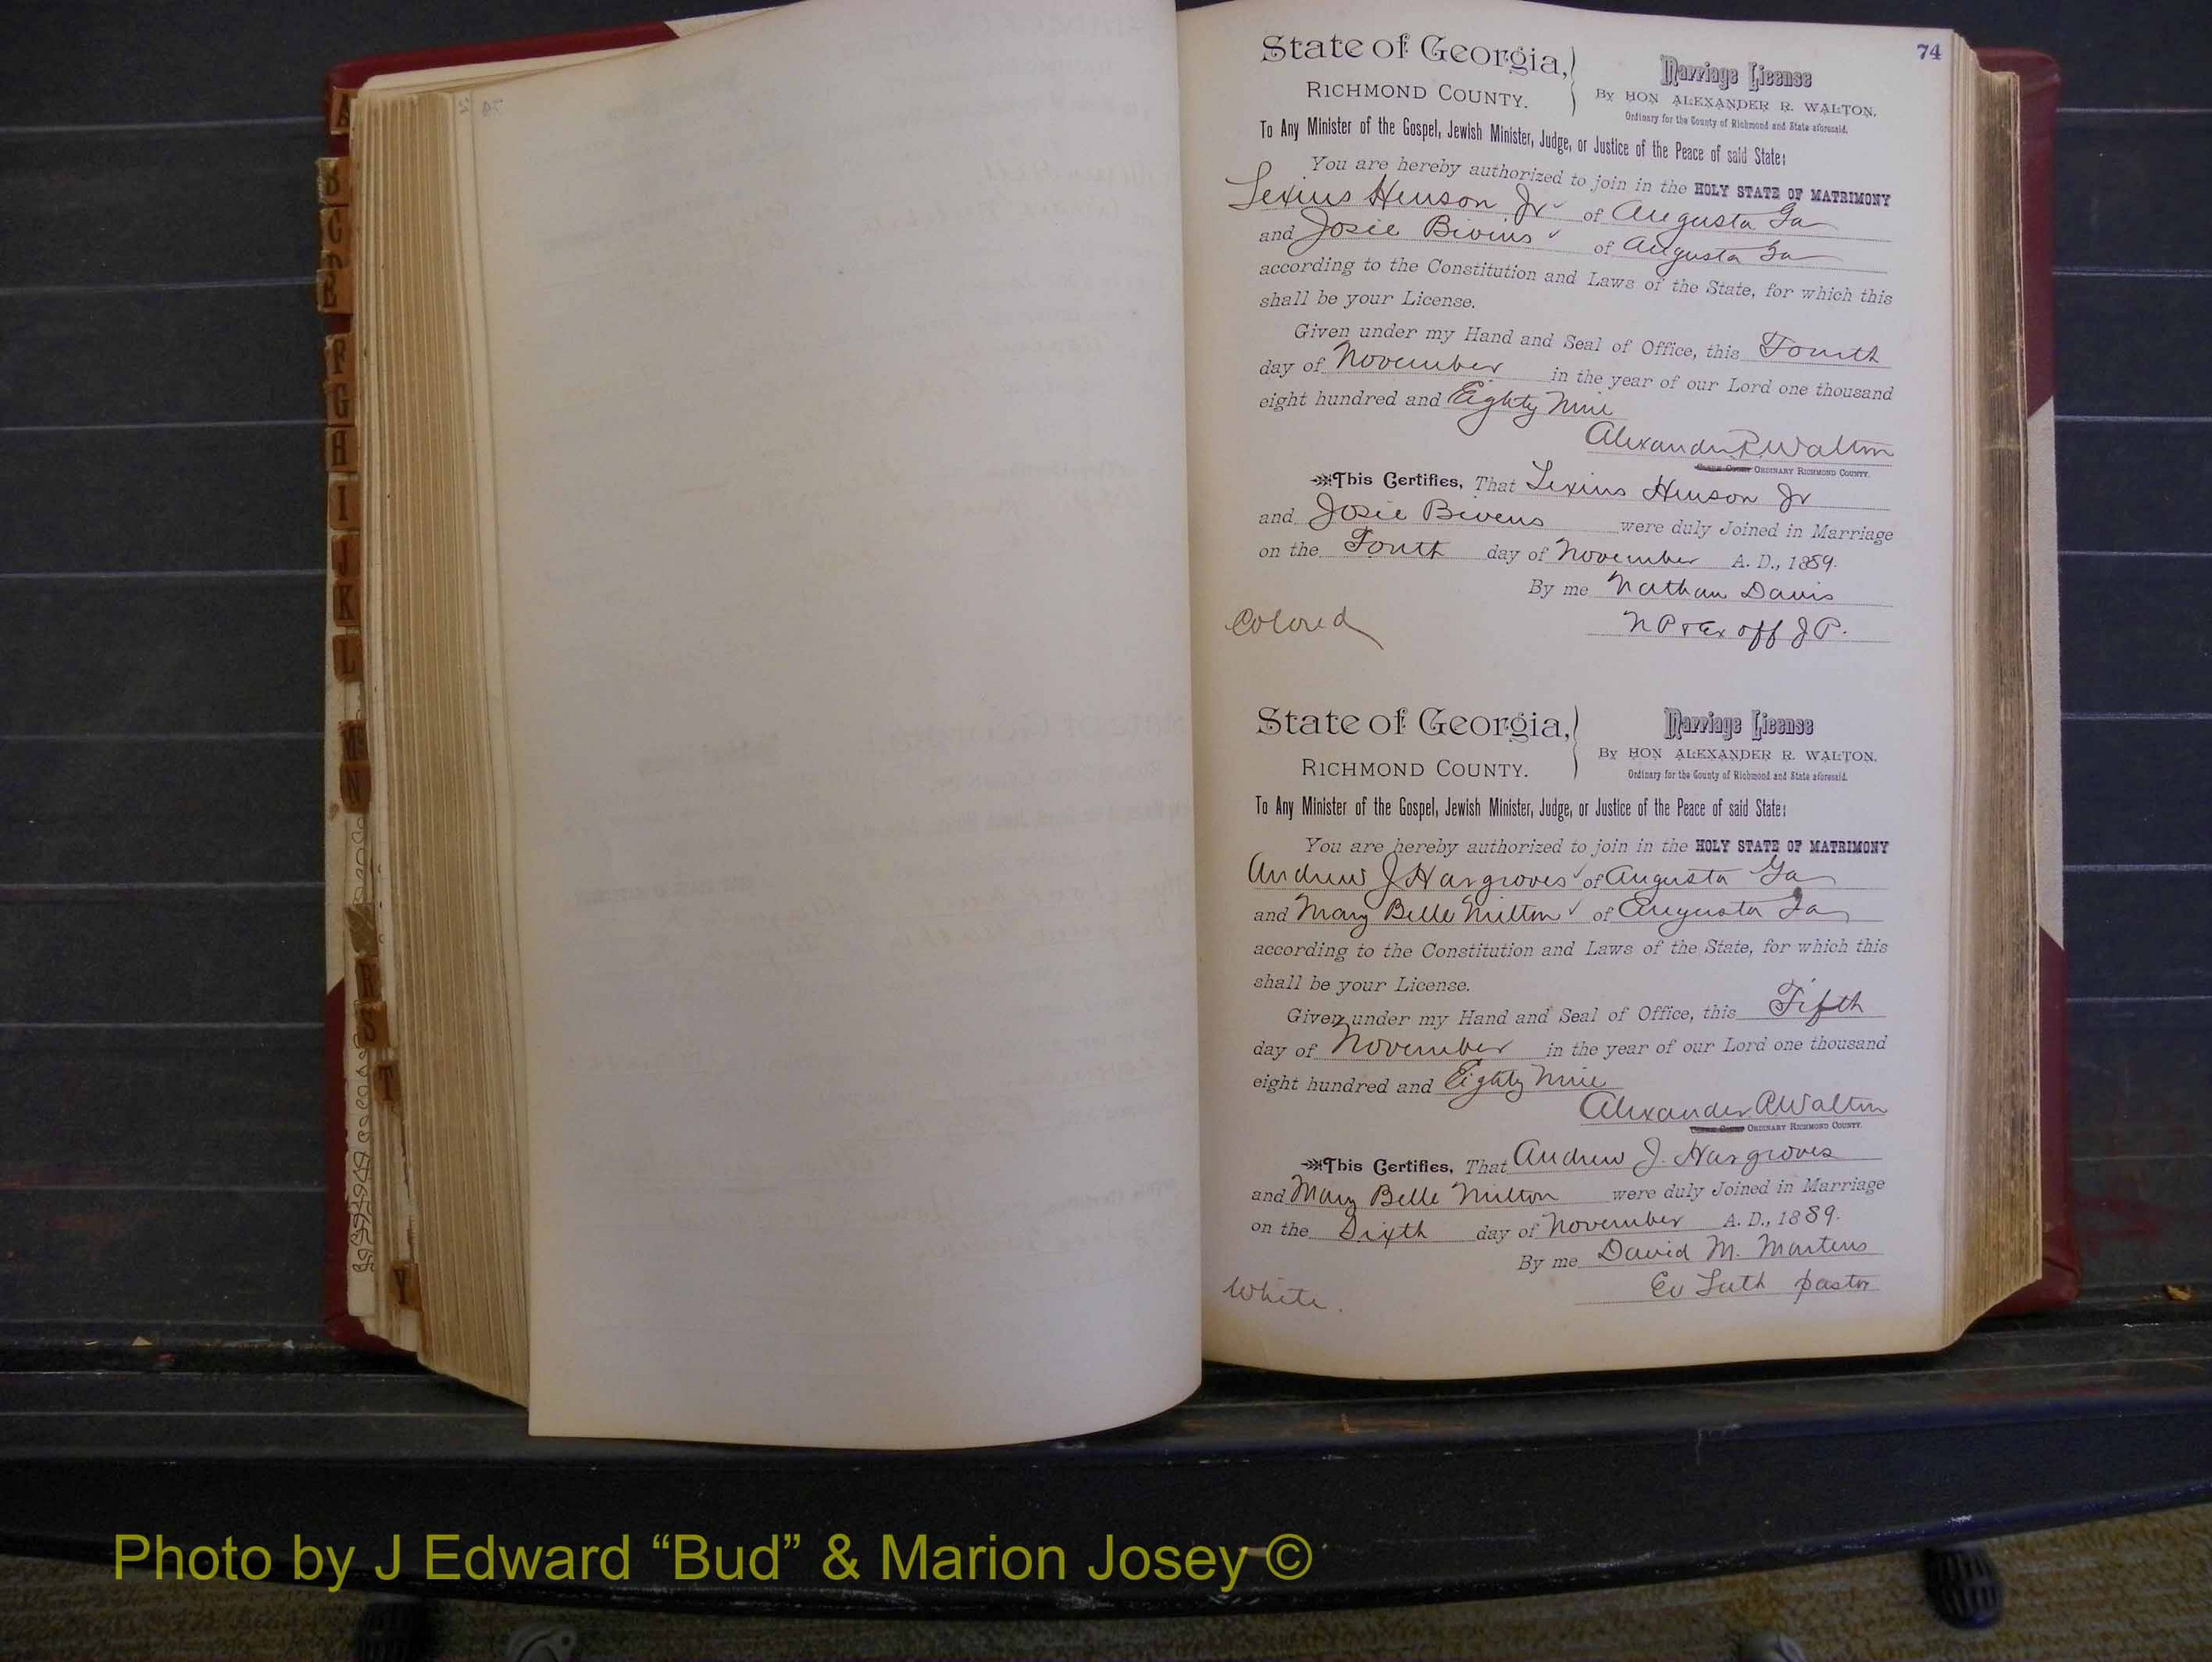 74
State of Georgia,
RICHMOND COUNTY.
Marriage License
By HON ALEXANDER R. WALTON,
Ordinary for the County of Richmond and State aforesaid.
To Any Minister of the Gospel, Jewish Minister, Judge, or Justice of the Peace of said State:
You are hereby authorized to join in the HOLY STATE OF MATRIMONY
Lexius Henson Jr of Augusta Ga
and Josie Bivins of Augusta Ga
according to the Constitution and Laws of the State, for which this
shall be your License.
Given under my Hand and Seal of Office, this Fourth
day of November in the year of our Lord one thousand
eight hundred and Eighty Nine
Alexander R Walton
ORDINARY RICHMOND COUNTY.
This Certifies, That Lexius Henson Jr
and Josie Bivens were duly Joined in Marriage
on the Fouth day of November A. D., 1889.
By me Nathan Davis
N P & Ex off J P.
Colored
State of Georgia,
RICHMOND COUNTY.
Marriage License
By HON ALEXANDER R. WALTON,
Ordinary for the County of Richmond and State aforesaid.
To Any Minister of the Gospel, Jewish Minister, Judge, or Justice of the Peace of said State:
You are hereby authorized to join in the HOLY STATE OF MATRIMONY
Andrew J Hargroves of Augusta Ga
and Mary Belle Milton of Augusta Ga
according to the Constitution and Laws of the State, for which this
shall be your License.
Given under my Hand and Seal of Office, this Fifth
day of November in the year of our Lord one thousand
eight hundred and Eighty Nine
Alexander R Walton
ORDINARY RICHMOND COUNTY.
This Certifies, That Andrew J. Hargroves
and Mary Belle Milton were duly Joined in Marriage
on the Sixth day of November A. D., 1889.
By me David M. Martens
Ev Luth pastor
White.
A
B
C
F
G
H
I
J
K
L
M
N
R
S
T
Y
Photo by J Edward “Bud” & Marion Josey ©